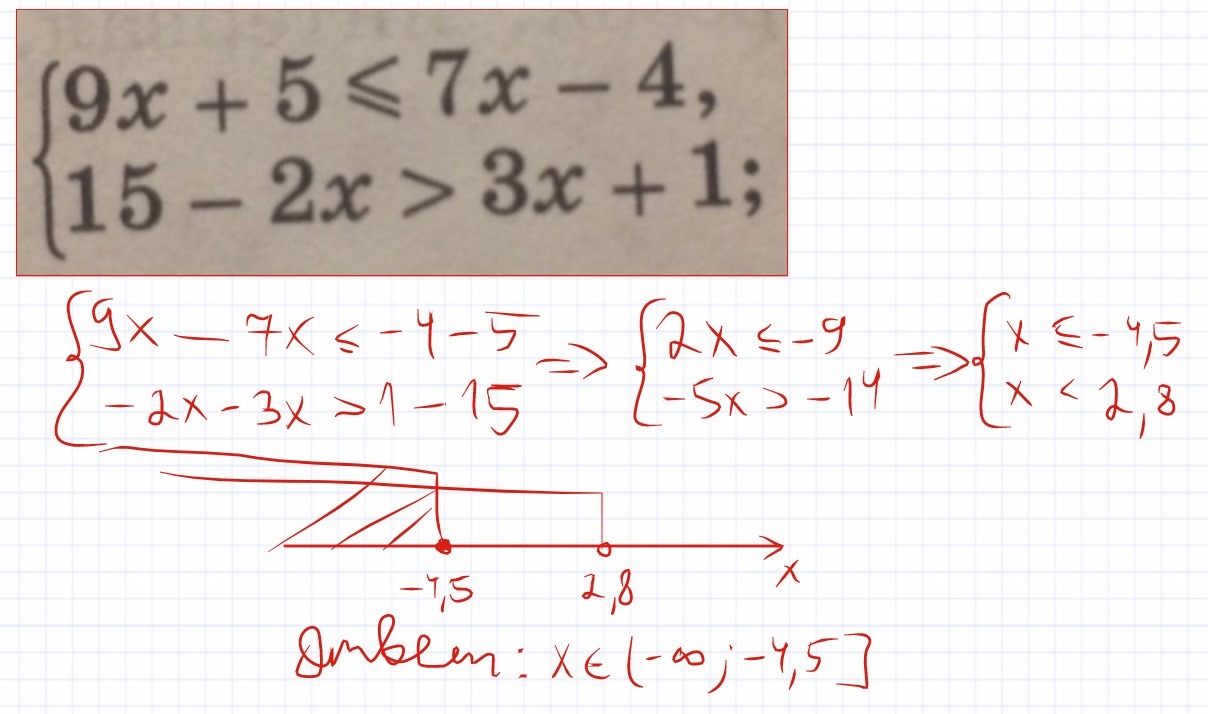 9x + 5 ⩽ 7x − 4,
15 − 2x > 3x + 1;
9x − 7x ≤ −4 − 5 => 2x ≤ −9 => x ≤ −4,5
−2x − 3x > 1 − 15 −5x > −14 x < 2,8
−4,5 2,8 x
Ответ: x ∈ (−∞; −4,5]